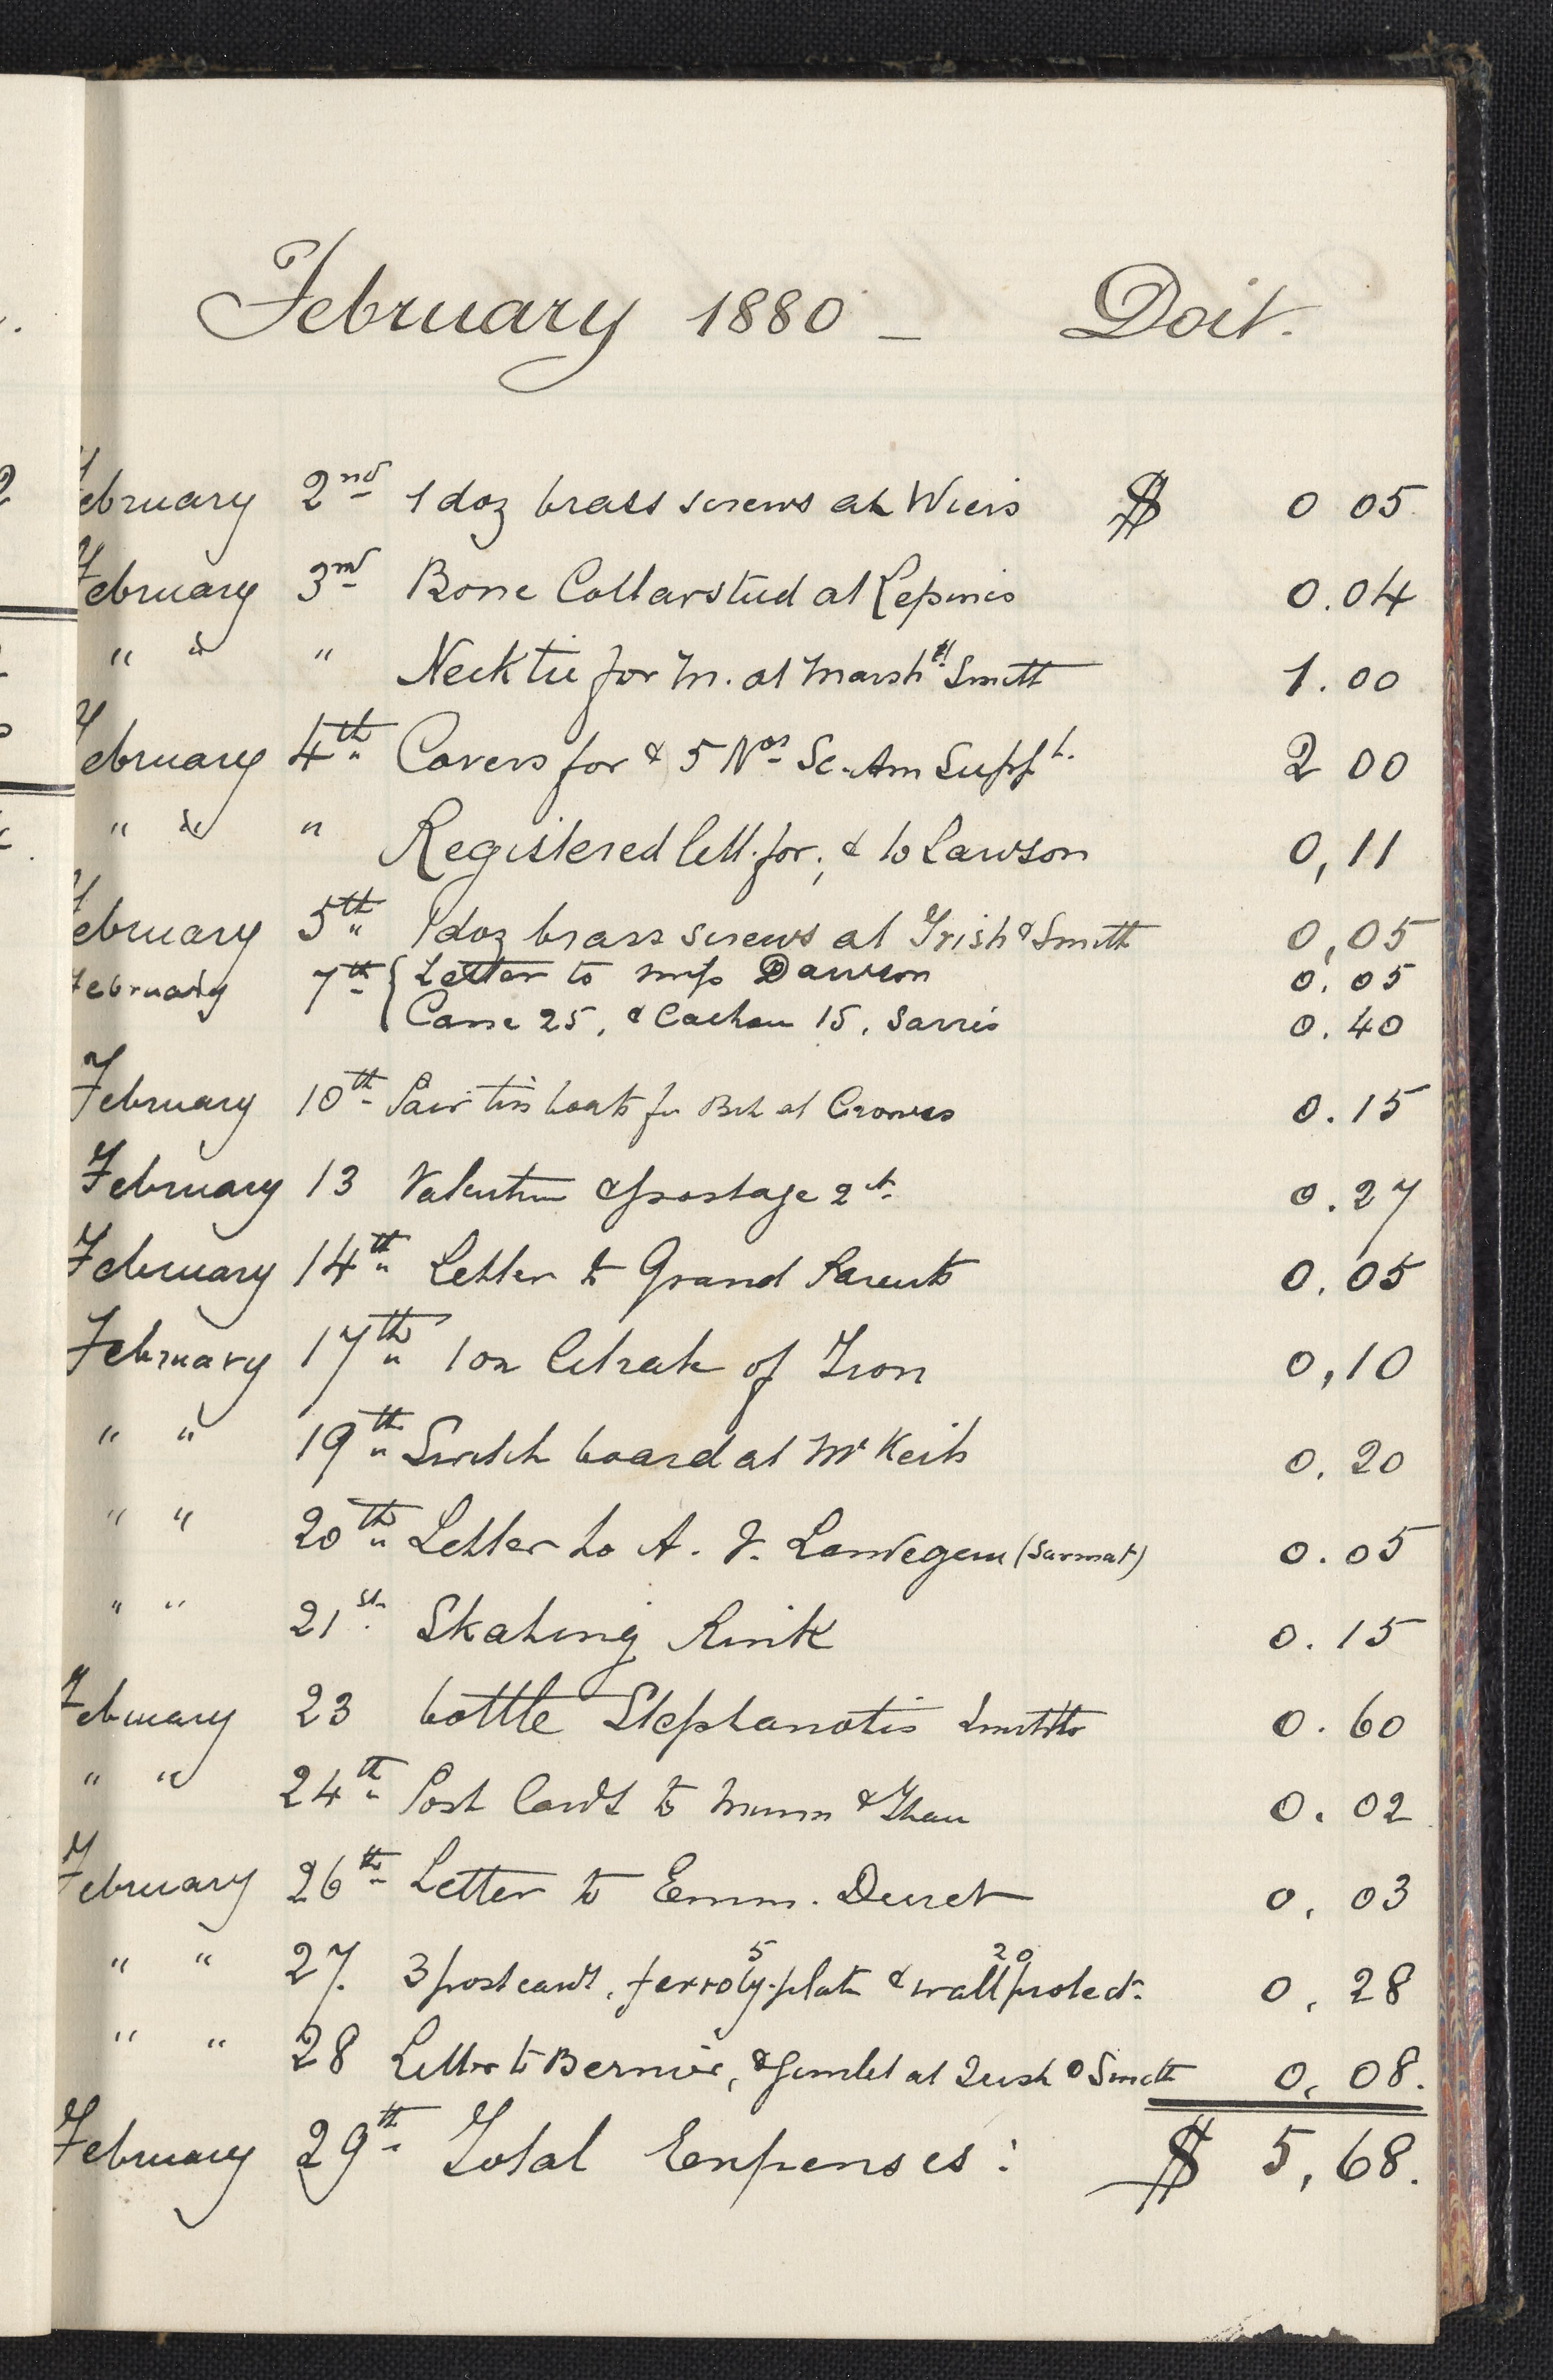 February 1880 — Doit.
February 2nd 1 doz brass screws at Wiers $ 0 05
February 3rd Bone Collarstud at Lepines 0.04
" " " Necktie for M. at Marsh & Smith 1.00
February 4th Covers for & 5 Nos Sc. Am Suppt. 2 00
" " " Registered lett. for, & to Lawson 0,11
February 5th 1 doz brass screws at Irish & Smith 0,05
February 7th { Letter to Dawson 0.05
Canne 25, & Cachou 15, 0.40
February 10th Pair tin boats for at 0.15
February 13 Valentine & postage 2ct. 0.27
February 14th Letter to Grand Parents 0.05
February 17th 1 oz Citrate of Iron 0,10
" " 19th Switch board at 0.20
" " 20th Letter to A. V. (Sarmat) 0.05
" " 21st. Skating Rink 0.15
February 23 bottle Stephanotis Smiths 0.60
" " 24th Post Cards to Munn & 0.02
February 26th Letter to Emm. Duret 0.03
" " 27. 3 postcards, 5 ferroty. plate & 20 wall protect. 0.28
" " 28 Letter to Bernier, & Gimlet at Irish & Smith 0.08.
February 29th Total Expenses: $ 5,68.